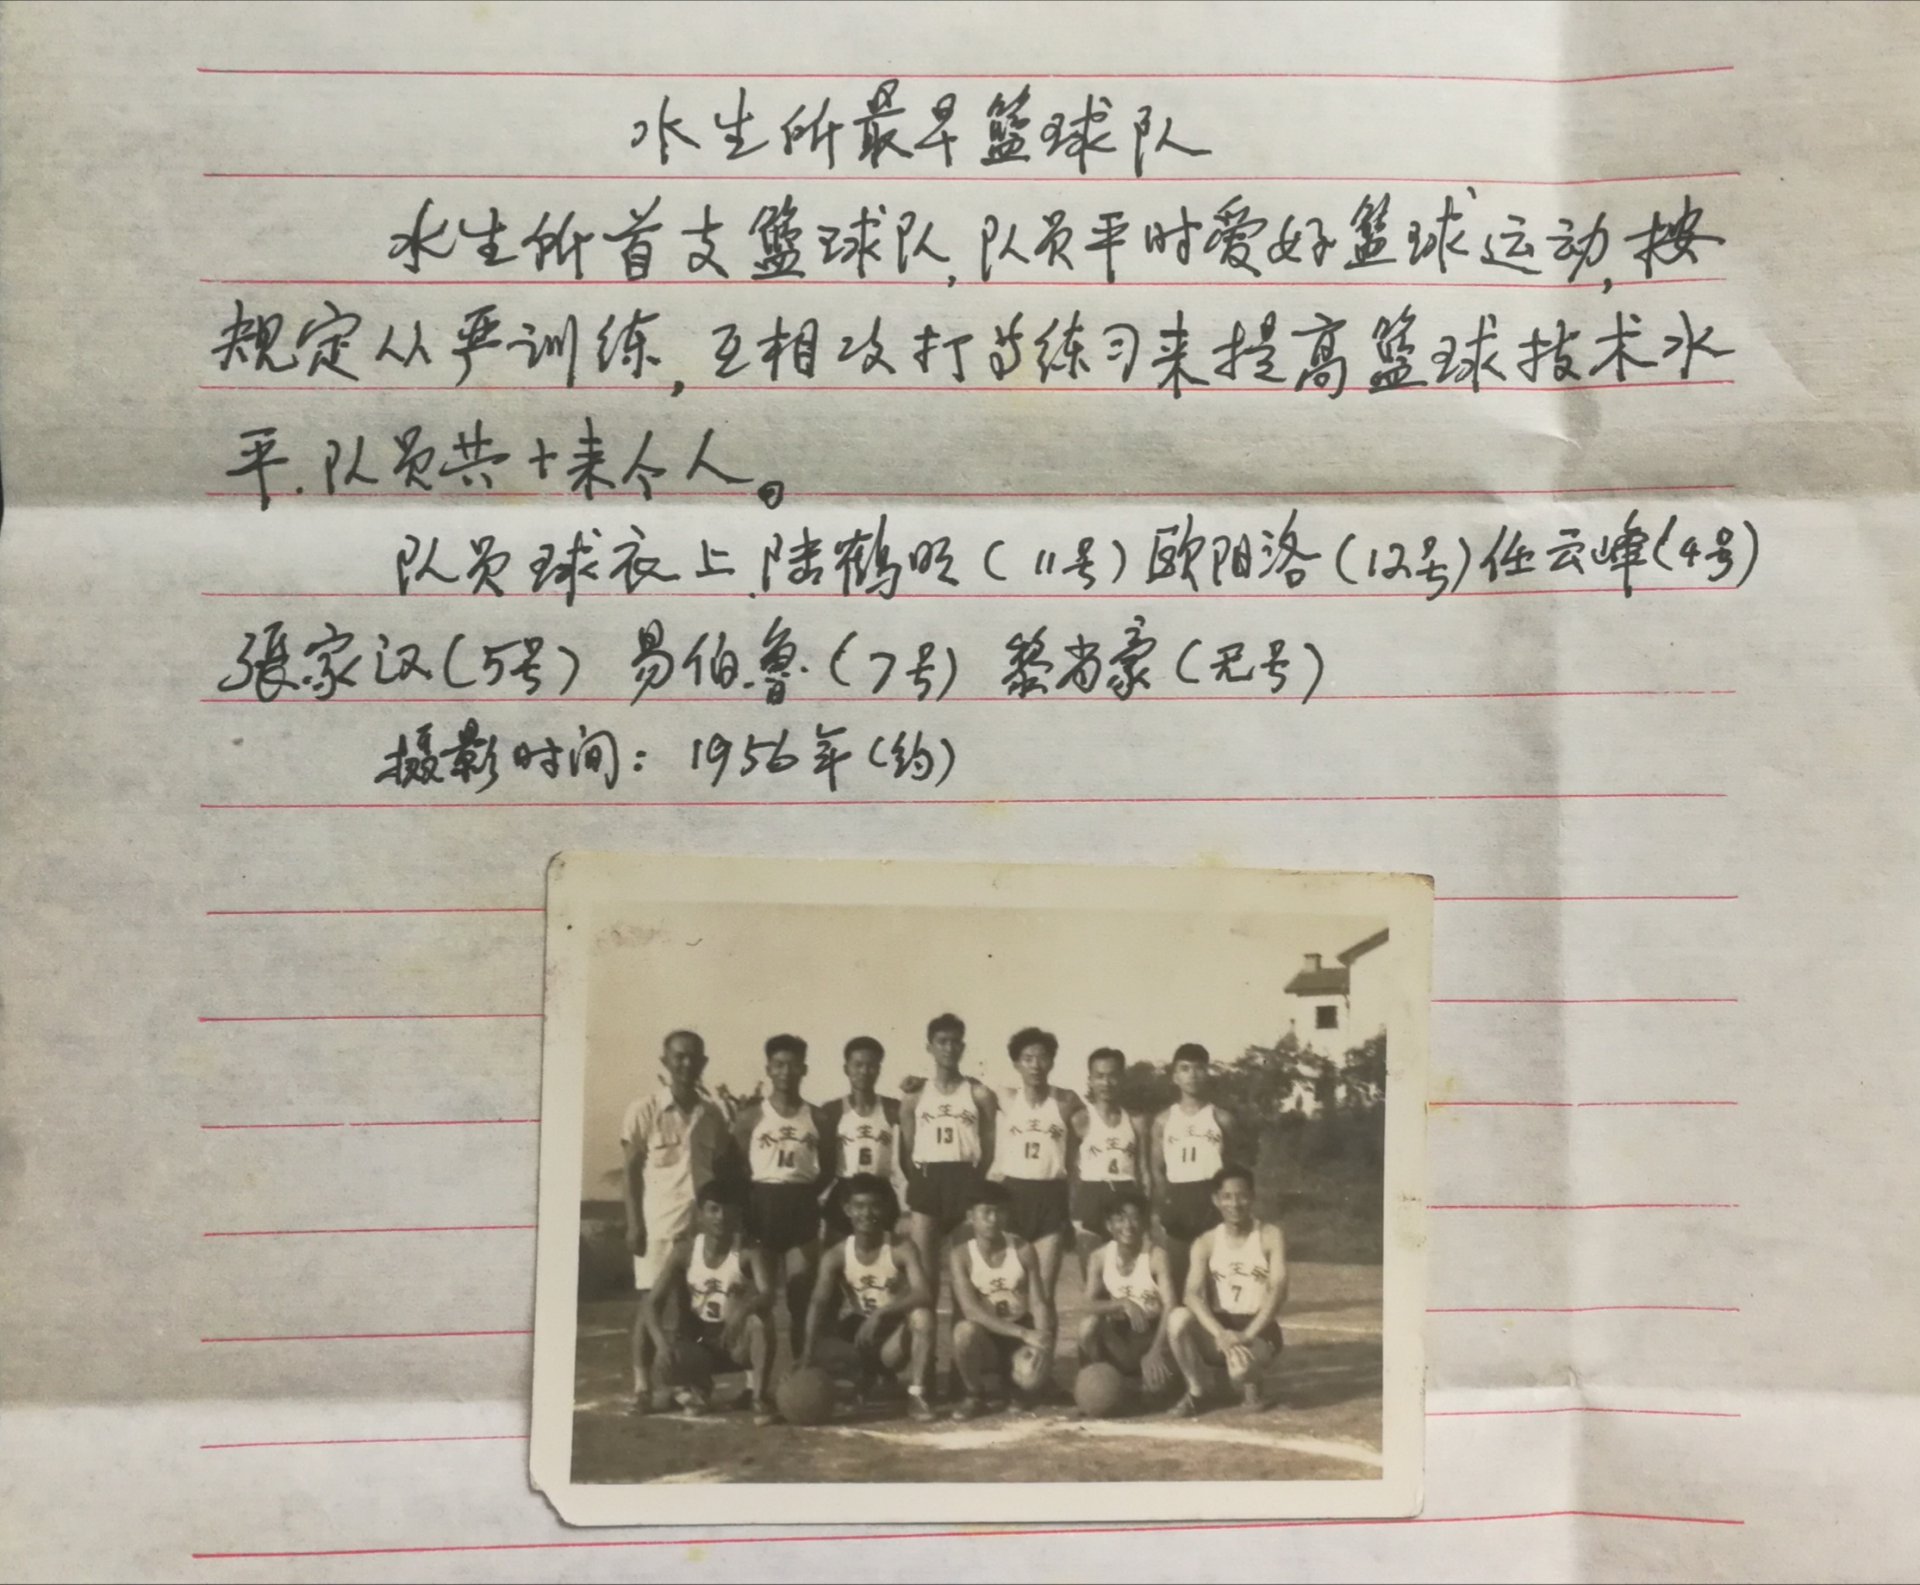 水生所最早篮球队
水生所首支篮球队,队员平时爱好篮球运动,按
规定从严训练,互相攻打当练习来提高篮球技术水
平.队员共十来个人。
队员球衣上.陆鹤明(11号)欧阳洛(12号)任云峰(4号)
張家汉(5号) 易伯鲁(7号) 黎尚豪(无号)
摄影时间:1956年(约)
水生所 14
水生所 6
水生所 13
水生所 12
水生所 4
水生所 11
水生所 3
水生所 5
水生所
水生所
水生所 7